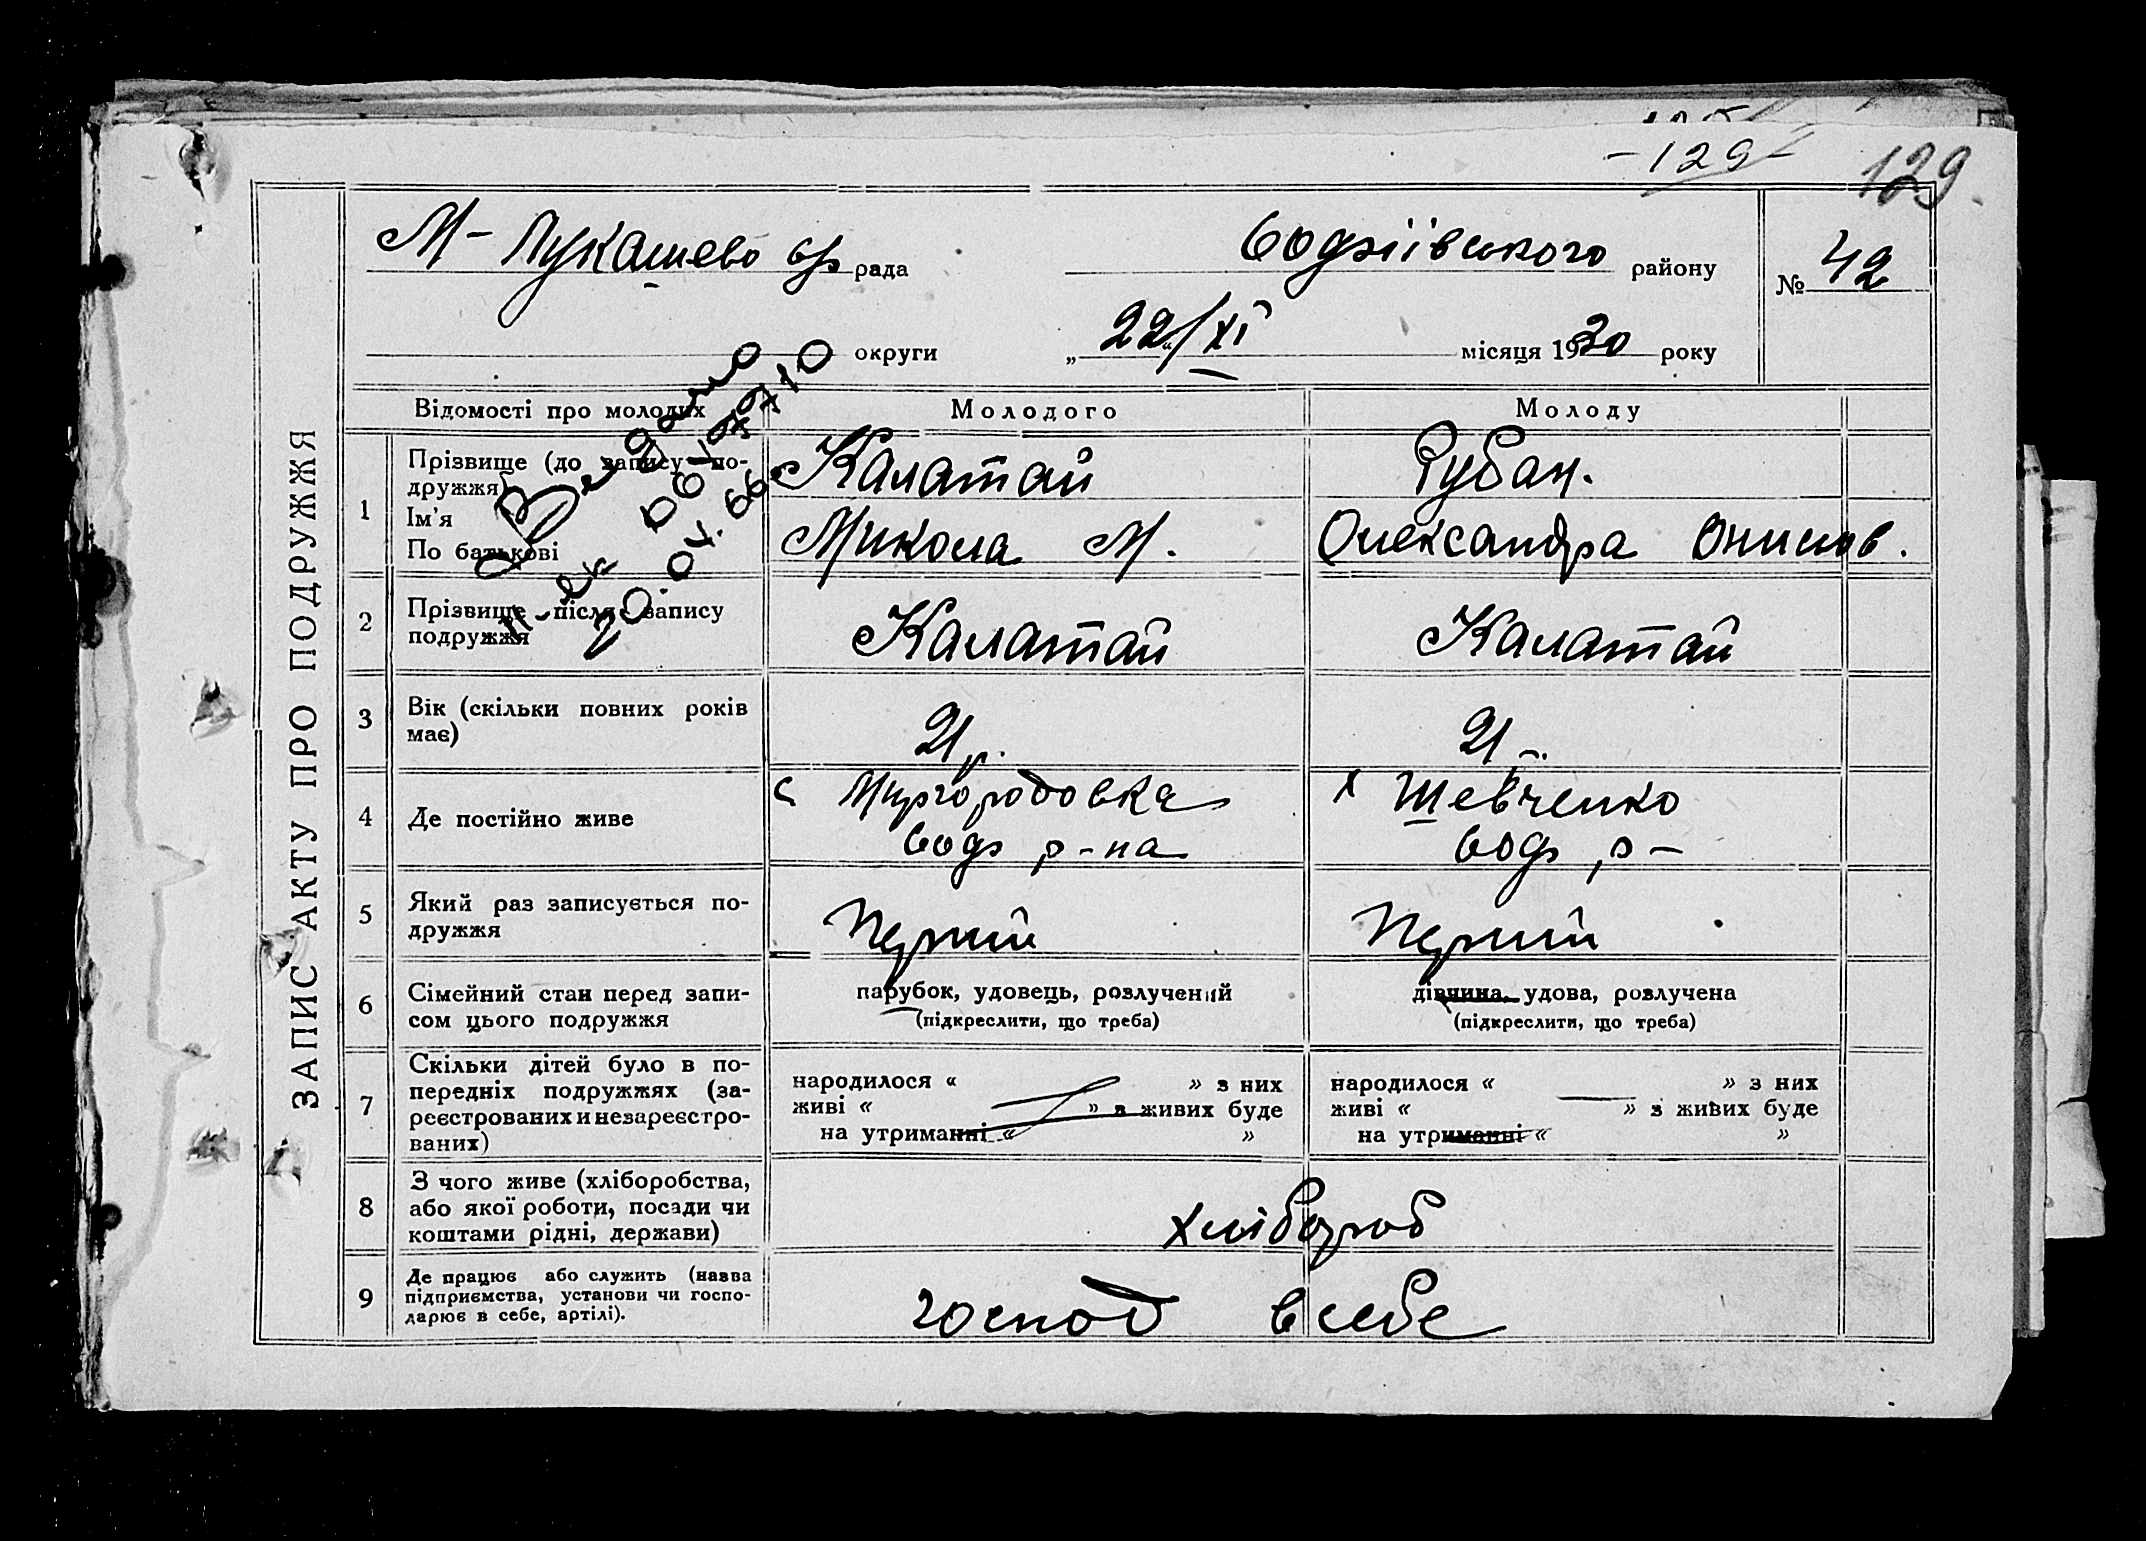 -129-
129
ЗАПИС АКТУ ПРО ПОДРУЖЖЯ
М-Лукашево рада
району
№ 42
округи
„ 22 “ / XI місяця 1930 року
Відомості про молодих
Молодого
Молоду
1
Прізвище (до запису по-
дружжя)
Ім'я
По батькові
Калатай
Микола М.
Рубан.
Олександра Онисов.
Видано
20.04.66
2
Прізвище після запису
подружжя
Калатай
Калатай
3
Вік (скільки повних років
має)
21 р.
21
4
Де постійно живе
с Миргородовка
Соф р-на
х Шевченко
Соф р-
5
Який раз записується по-
дружжя
Перший
Перший
6
Сімейний стан перед запи-
сом цього подружжя
парубок, удовець, розлучений
(підкреслити, що треба)
дівчина, удова, розлучена
(підкреслити, що треба)
7
Скільки дітей було в по-
передніх подружжях (за-
реєстрованих и незареєстро-
ваних)
народилося « » з них
живі « » з живих буде
на утриманні « »
народилося « » з них
живі « » з живих буде
на утриманні « »
8
З чого живе (хліборобства,
або якої роботи, посади чи
коштами рідні, держави)
хлібороб
9
Де працює або служить (назва
підприємства, установи чи госпо-
дарює в себе, артілі).
господ в себе